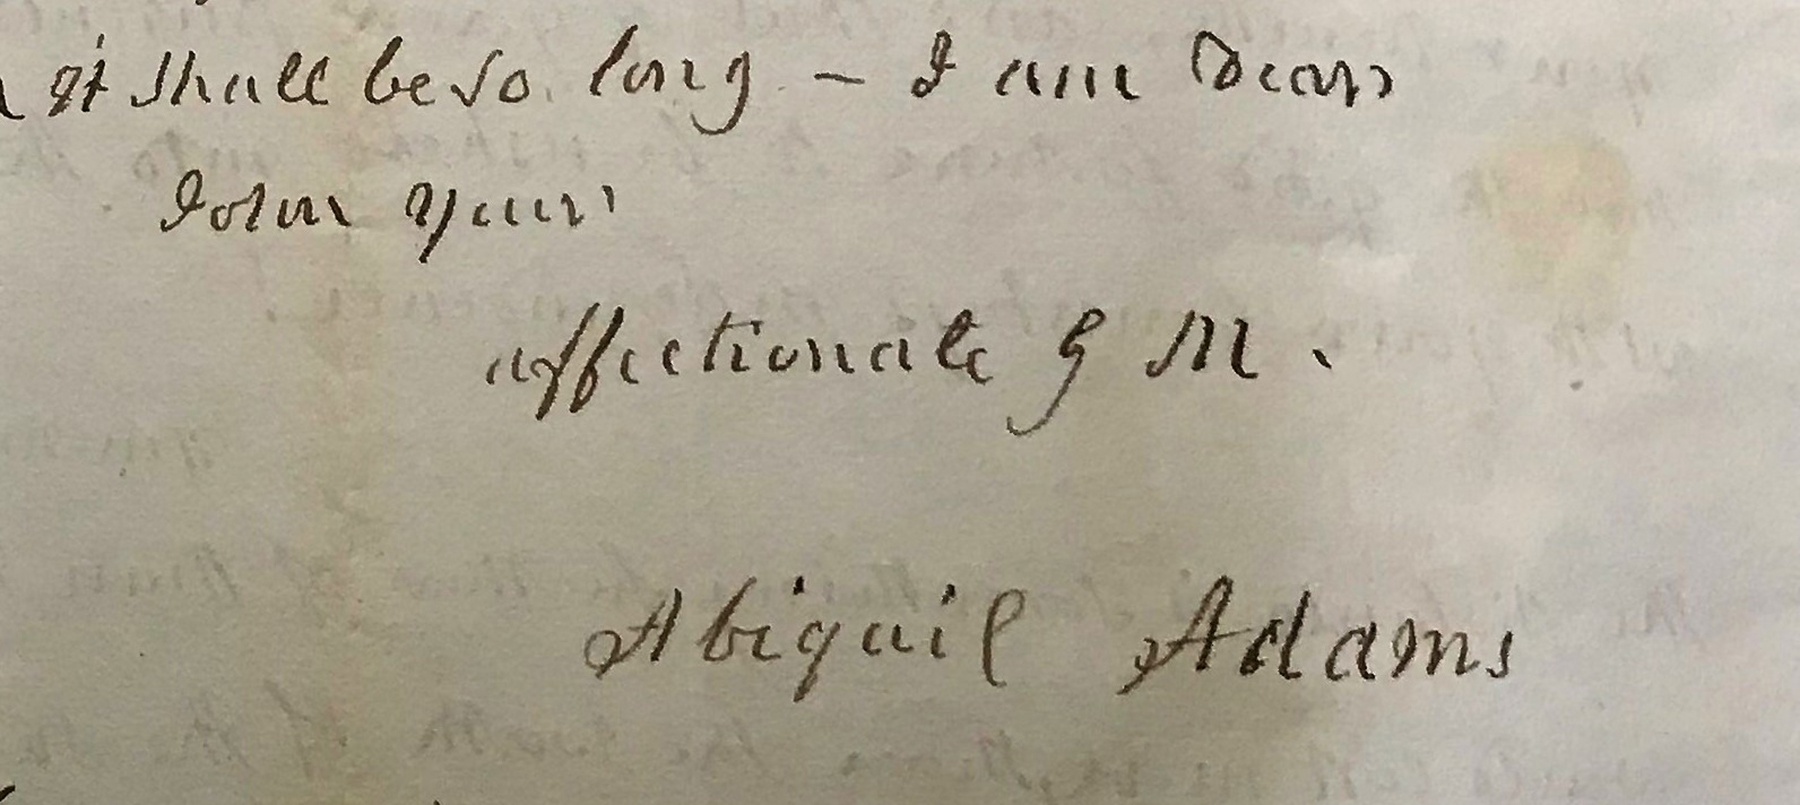 it shall be so long – I am Dear
John your
affectionate G M.
Abigail Adams